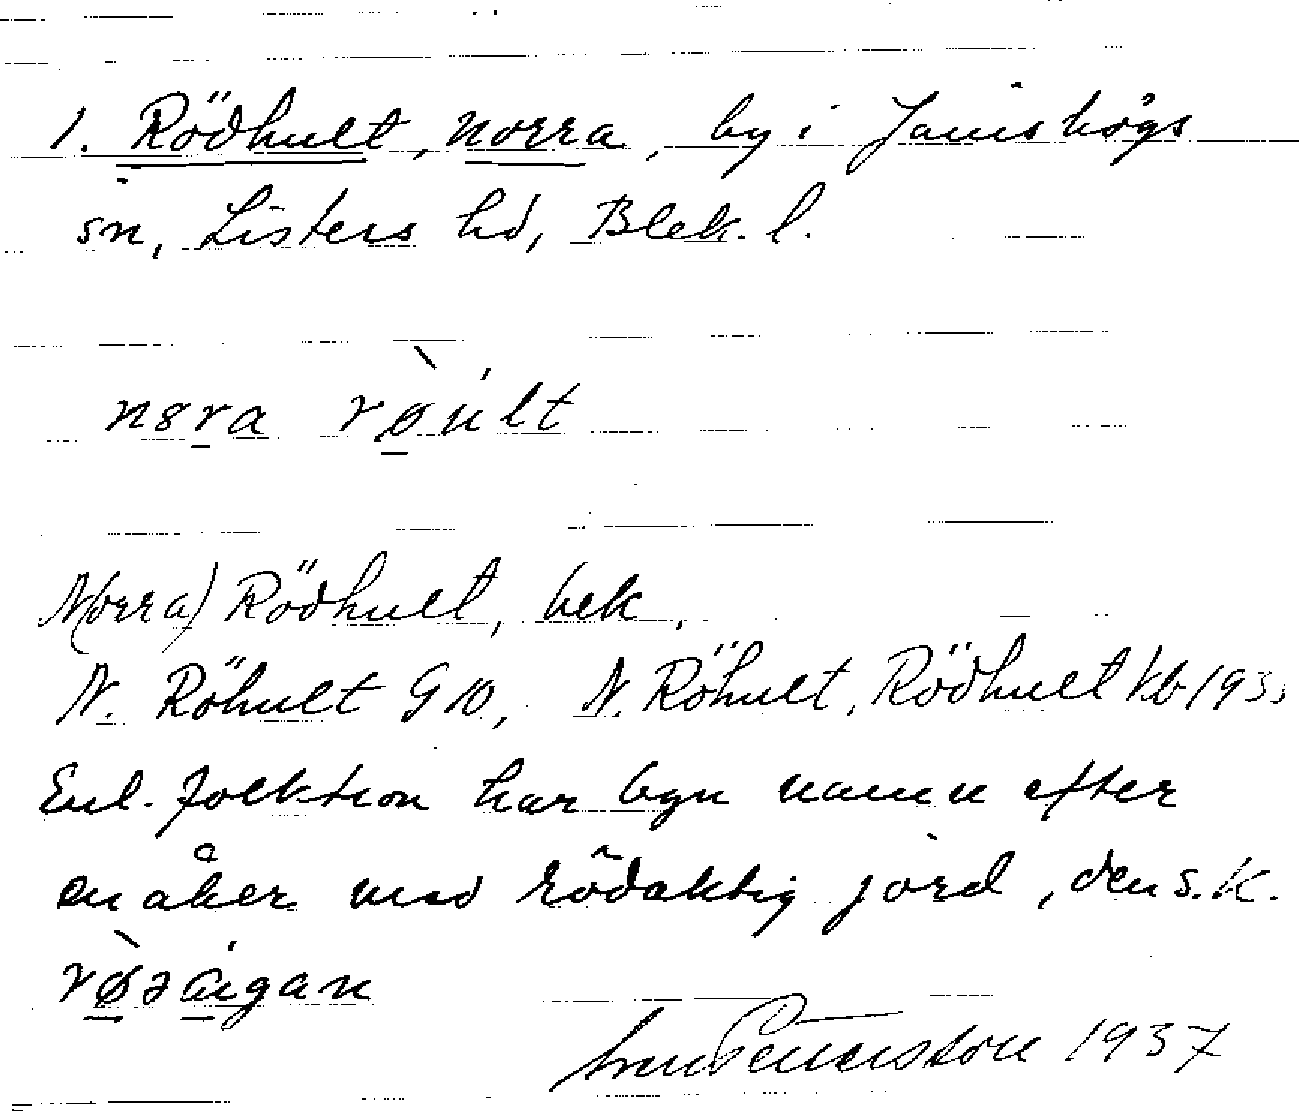 1. Rödhult, norra, by i Jämshögs
sn, Listers hd, Blek. l.
nora røult
N(orra) Rödhult, bek.
N. Röhult G 10, N. Röhult, Rödhult kb 1933
Enl. folktron har byn namn efter
en åker med rödaktig jord, den s.k.
røzaigan
1937